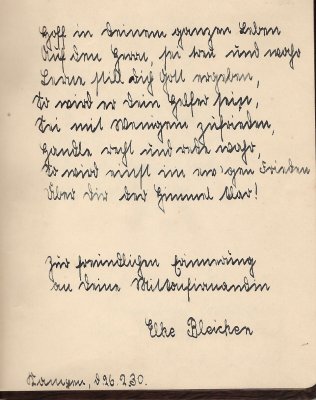 Hoff in deinem ganzen Leben
Auf den Herrn, sei treu und wahr
Lerne still dich Gott ergeben,
So wird er dein Helfer sein,
Sei mit Wenigem zufrieden,
Handle recht und rede wahr,
So wird einst in ew'gen Frieden
Über dir der Himmel klar!
Zur freundlichen Erinnerung
an deine Mitkonfirmandin
Elke Bleichen
d 26.2.30.